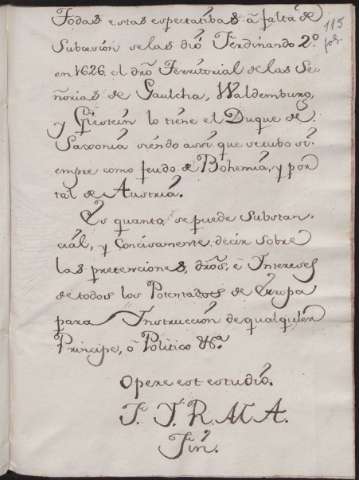 115
fol.
Todas estas espectatibas â falta de
Subcesión se las dió Ferdinando 2.º
en 1626. el dro Territorial de las Se-
ñorias de Gaulcha, Waldemburg,
y lo tiene el Duque de
Saxonia siendo assi que recubo si-
empre como feudo de Bohemia, y por
tal de Austria.
Es quanto, se puede substan-
cial, y Concisamente, decir sobre
las pretenciones, dros. è Intereses
de todos los Potentados de Europa
para Instrucción de qualquier
Principe, ô Politico &ª
Opere est estudió.
Fin.